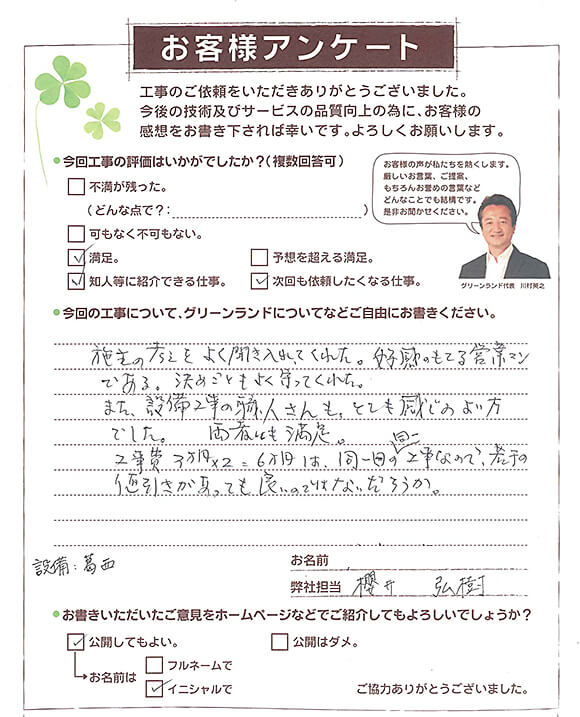 お客様アンケート
工事のご依頼をいただきありがとうございました。
今後の技術及びサービスの品質向上の為に、お客様の
感想をお書き下されば幸いです。よろしくお願いします。
今回工事の評価はいかがでしたか?(複数回答可)
不満が残った。
(どんな点で?: )
可もなく不可もない。
満足。
予想を超える満足。
知人等に紹介できる仕事。
次回も依頼したくなる仕事。
お客様の声が私たちを熱くします。
厳しいお言葉、ご提案、
もちろんお誉めの言葉など
どんなことでも結構です。
是非お聞かせください。
グリーンランド代表 川村英之
今回の工事について、グリーンランドについてなどご自由にお書きください。
施主の考えをよく聞き入れてくれた。好感のもてる営業マン
である。決めごともよく守ってくれた。
また、設備工事の職人さんも、とても感じのよい方
でした。 両者とも満足。
工事費3万円×2=6万円は、同一日の同一工事なので、若干の
値引きがあっても良いのではないだろうか。
設備:葛西
お名前
弊社担当 櫻井 弘樹
お書きいただいたご意見をホームページなどでご紹介してもよろしいでしょうか?
公開してもよい。
公開はダメ。
お名前は
フルネームで
イニシャルで
ご協力ありがとうございました。